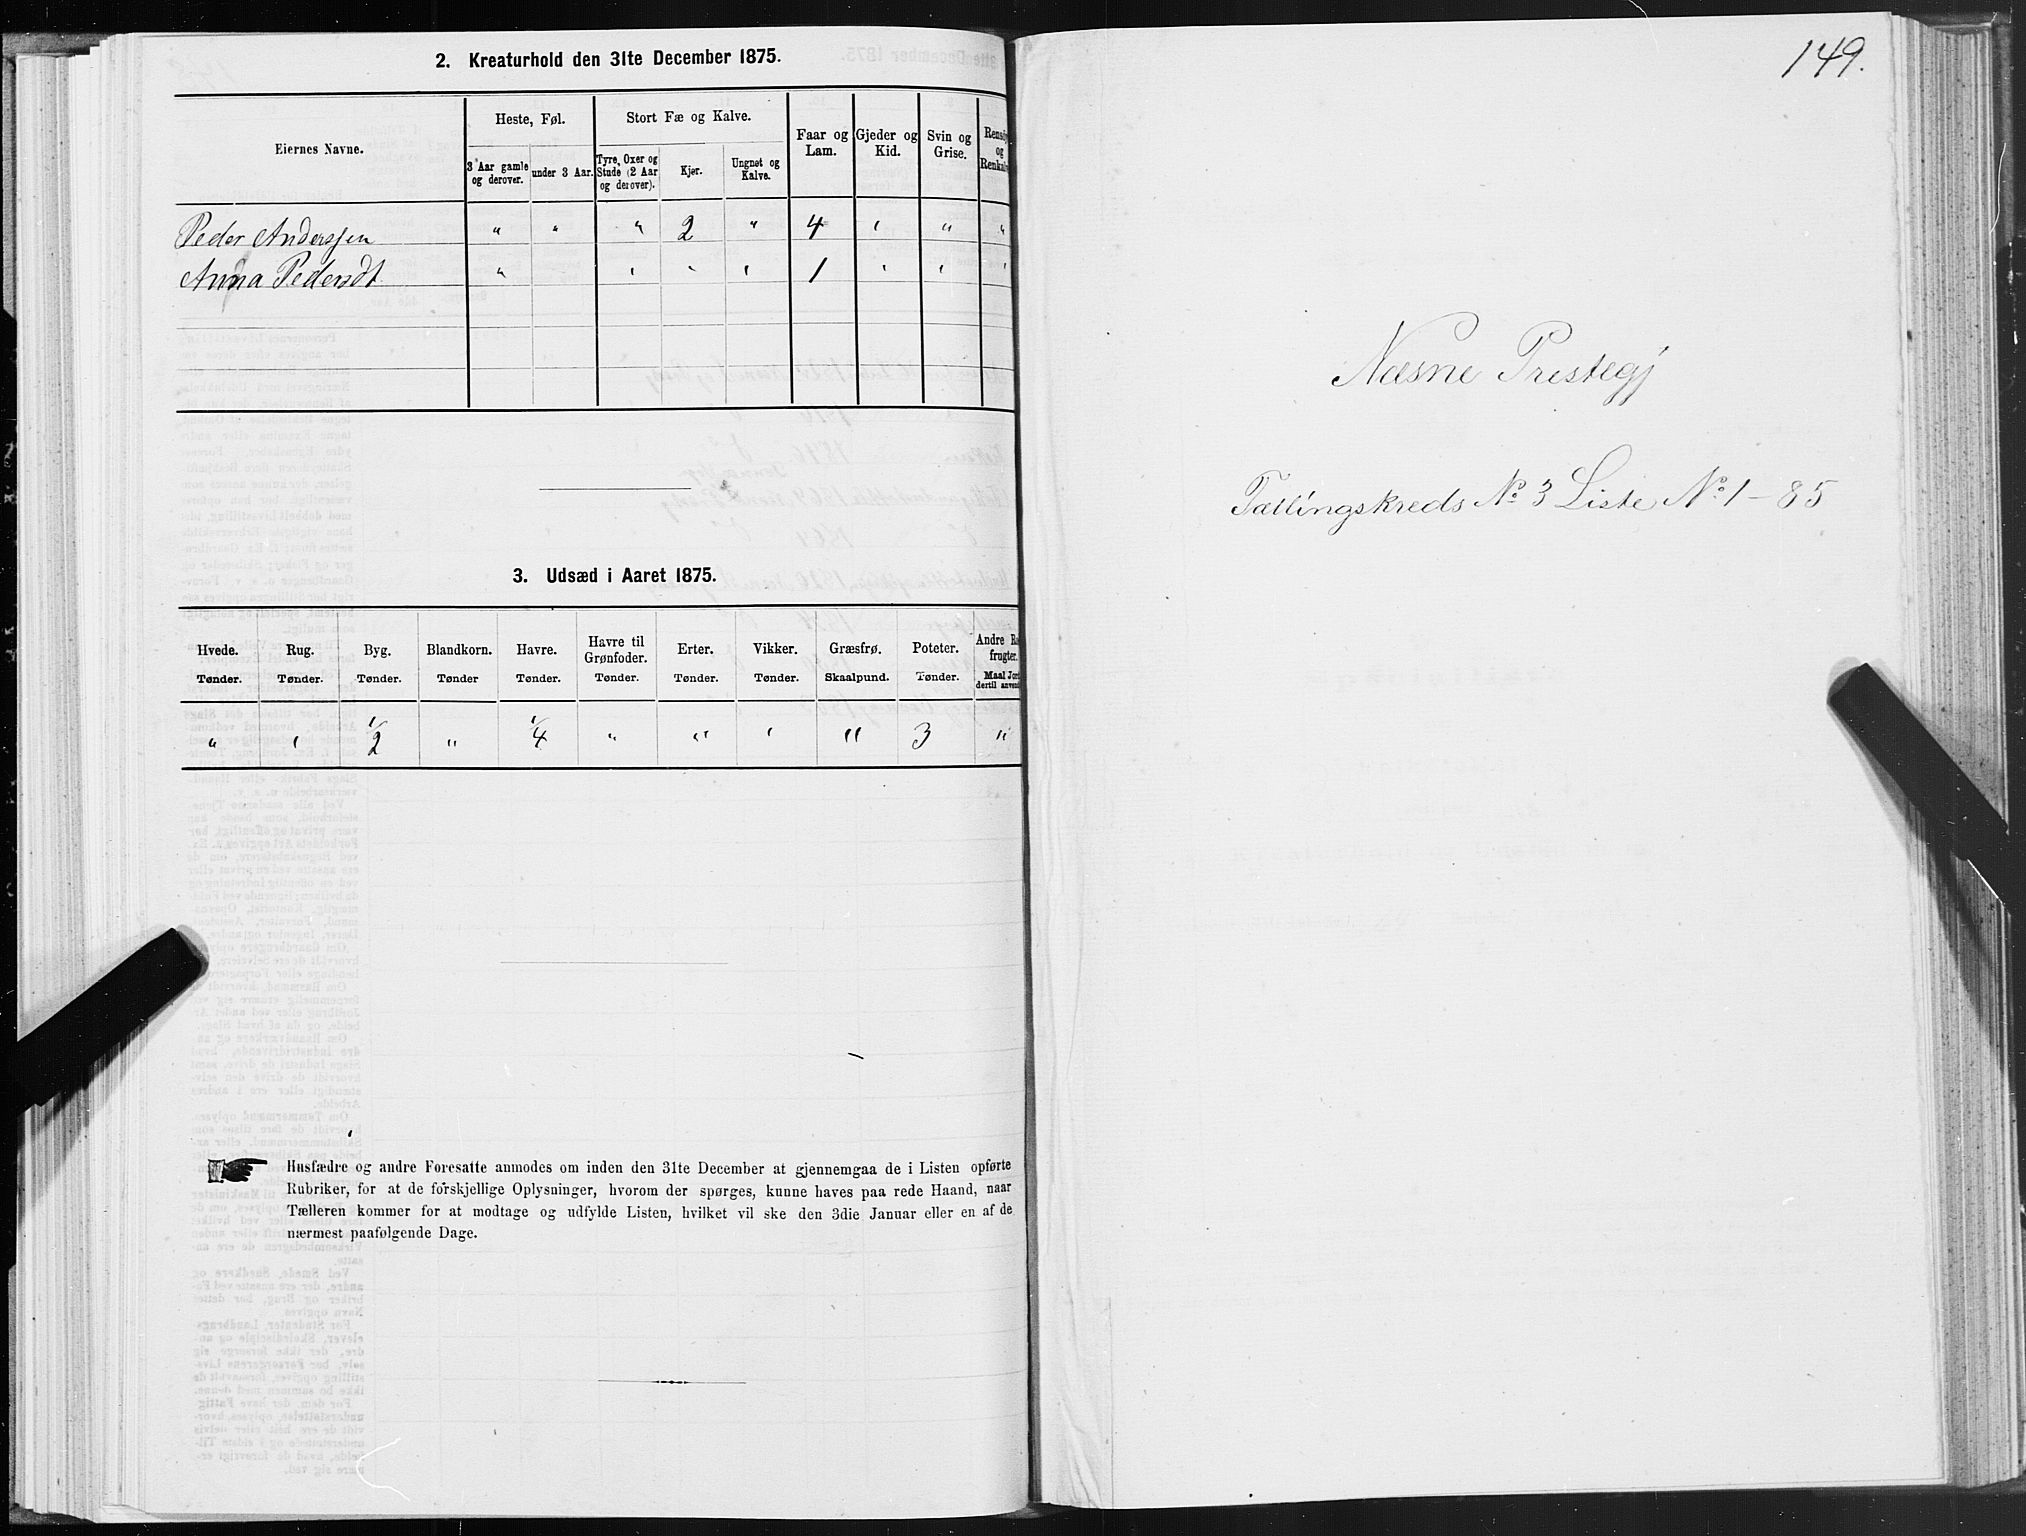 2. Kreaturhold den 31te December 1875.
Eiernes Navne. Heste, Føl. Stort Fæ og Kalve. Faar og Lam. Gjeder og Kid. Svin og Grise.
3 Aar gamle og derover. under 3 Aar. Tyre, Oxer og Stude (2 Aar og derover). Kjør. Ungnøt og Kalve.
Peder Anderssen " " " 2 " 4 " " "
Anna Pedersdt " " " " 1 " " "
3. Udsæd i Aaret 1875.
Hvede. Rug. Byg. Blandkorn. Havre. Havre til Grønfoder. Erter. Vikker. Græsfrø. Poteter. Andre
Tønder. Tønder. Tønder. Tønder Tønder. Tønder. Tønder. Tønder. Skaalpund. Tønder. Maal
" " 1/2 " 1/4 " " " " 3 "
Husfædre og andre Foresatte anmodes om inden den 31te December at gjennemgaa de i Listen opførte
Rubriker, for at de forskjellige Oplysninger, hvorom der spørges, kunne haves paa rede Haand, naar
Tælleren kommer for at modtage og udfylde Listen, hvilket vil ske den 3die Januar eller en af de
nærmest paafølgende Dage.
149.
Næsne Prestegj
Tællingskreds No 3 Liste No 1-85